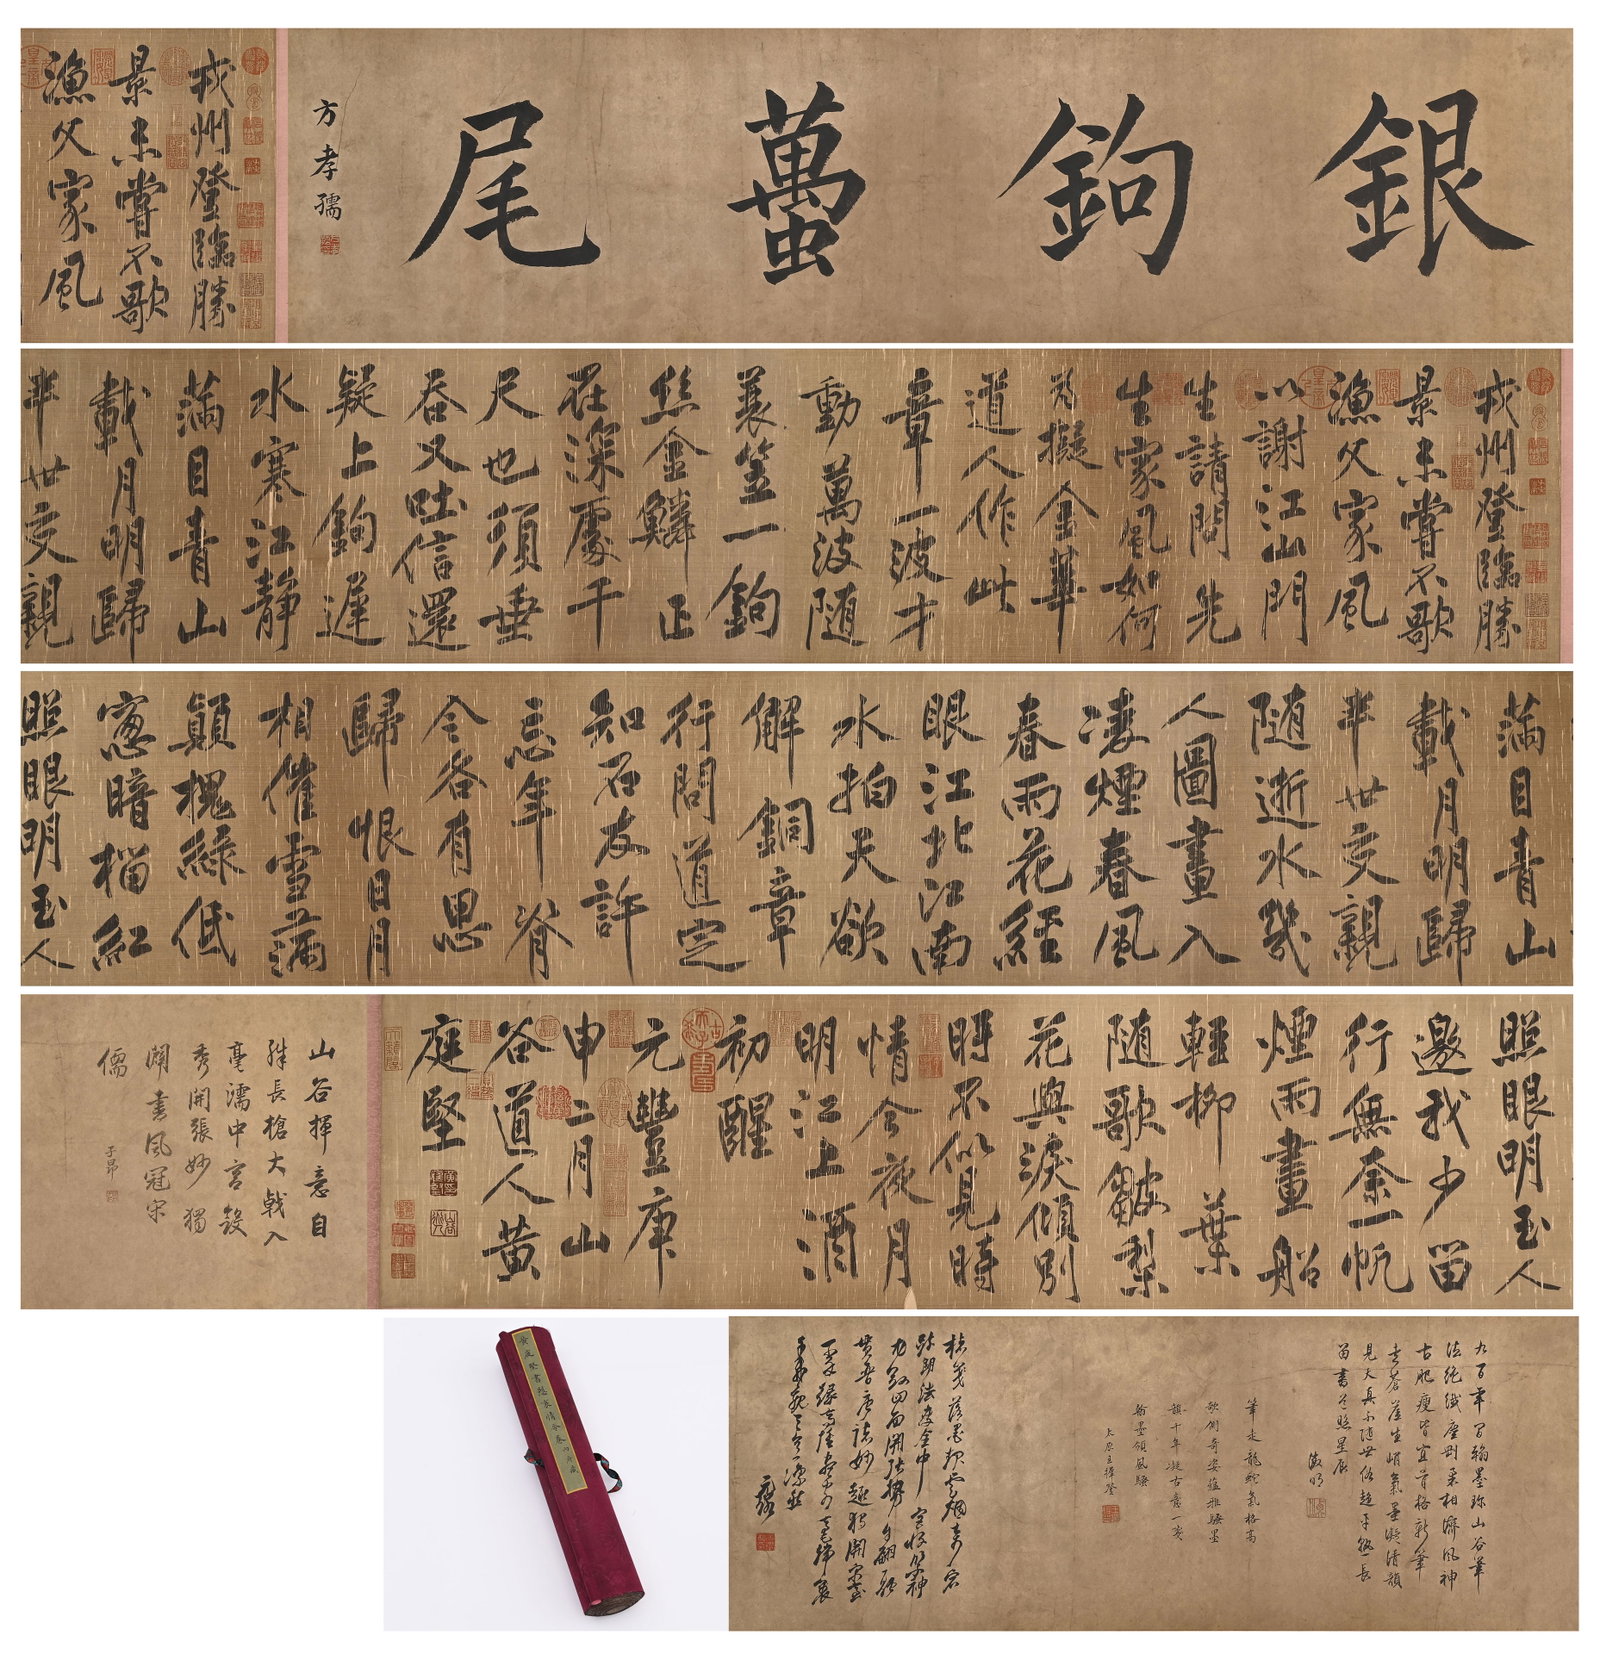 銀鉤蠆尾
方孝孺
戎州登臨勝
景未嘗不歌
漁父家風
戎州登臨勝
景未嘗不歌
漁父家風
以謝江山門
生請問先
生家風如何
為擬金華
道人作此
章一波才
動萬波随
蓑笠一鉤
絲金鱗正
在深處千
尺也須垂
吞又吐信還
疑上鉤遲
水寒江靜
滿目青山
載月明歸
半世交親
滿目青山
載月明歸
半世交親
随逝水幾
人圖畫入
凌煙春風
春雨花經
眼江北江南
水拍天欲
解銅章
行問道定
知石友許
忘年脊
令各有思
歸恨日月
相催雪滿
顛槐綠低
窓暗榴紅
照眼明玉人
照眼明玉人
邀我少留
行無奈一帆
煙雨畫船
輕柳葉
随歌皺梨
花與淚傾別
時不似見時
情今夜月
明江上酒
初醒
元豐庚
申二月山
谷道人黃
庭堅
山谷揮意自
殊長槍大戟入
毫濡中宮斂
秀開張妙獨
闢書風冠宋
儒
子昂
九百年間翰墨珍山谷筆
法絕纖塵剛柔相濟風神
古肥瘦皆宜骨格新筆
走蒼崖生峭氣墨凝清韻
見天真不隨世俗趨平熟一長
留書道照星辰
徵明
筆走龍蛇氣格高
欹側奇姿蘊雅騷墨
韻千年凝古意一卷
翰墨領風騷
太原王穉登